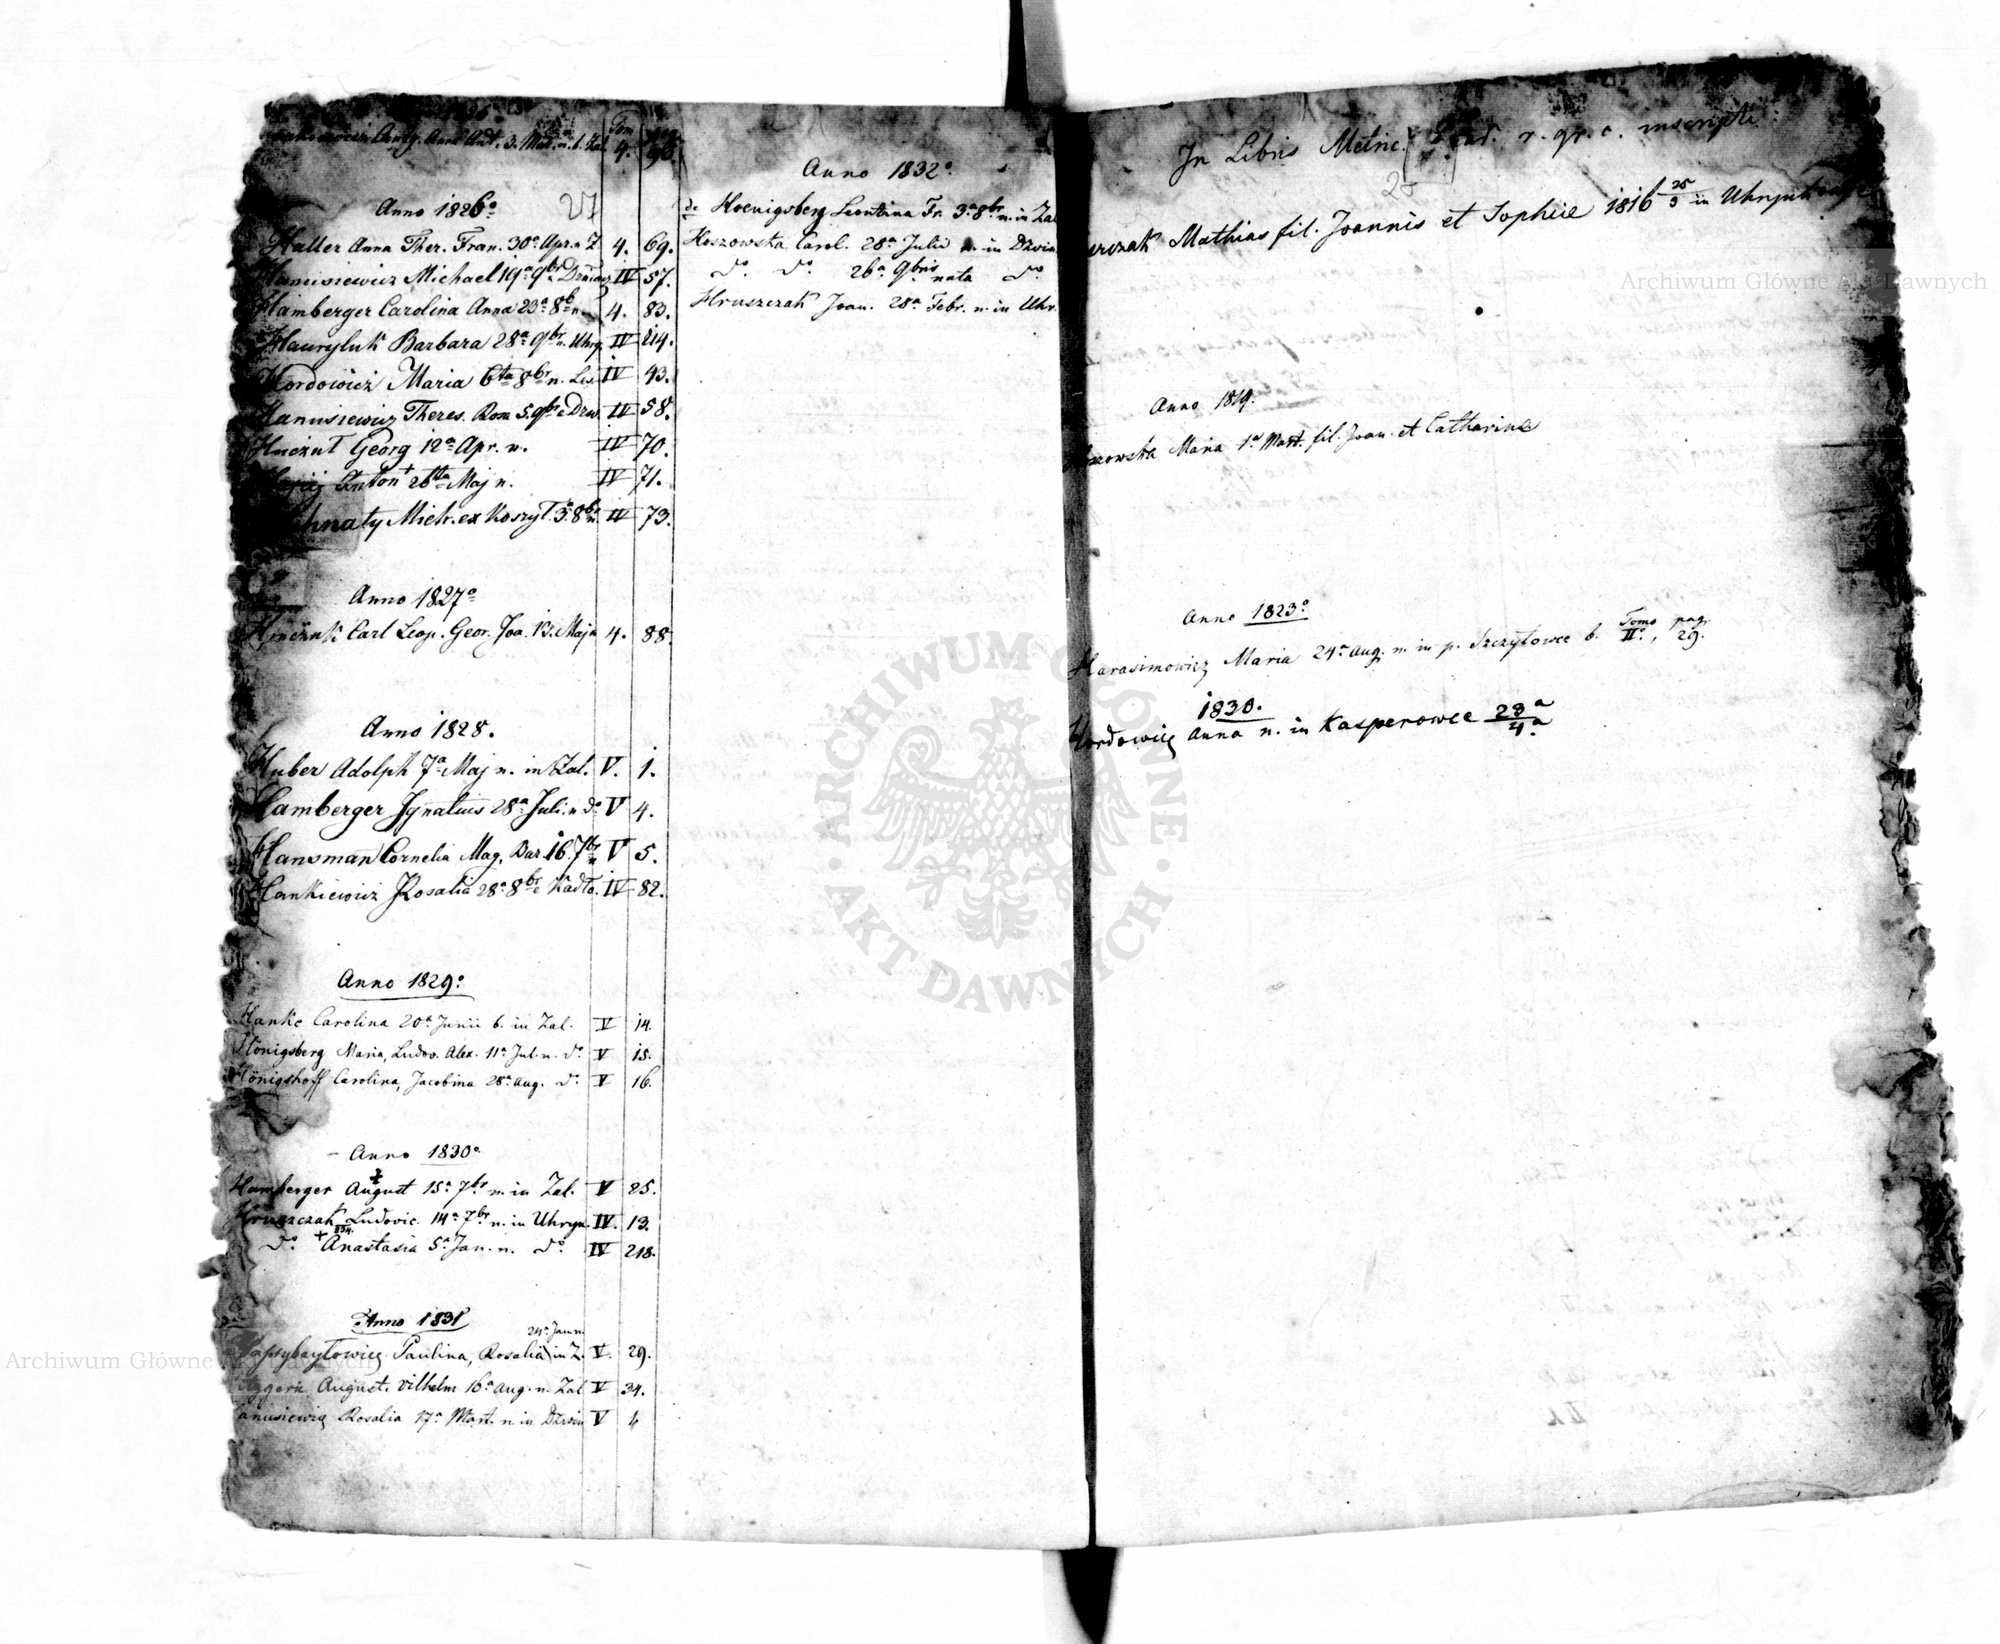 Tom pag.
4. 98.
Anno 1826º
Haller Anna Ther. Fran. 30ª Apr. n Z 4. 69.
Hanusiewicz Michael 19ª 9br IV 57.
Hamberger Carolina Anna 23ª 8b n 4. 83.
Hawryluk Barbara 28ª 9br n. Uhry. IV 214.
Hordowicz Maria 6ta 8br n. Les. IV 43.
Hanusiewicz Theres. Rosa 5. 9br e Dzw. IV 58.
Hnczuk Georg 12ª Apr. n. IV 70.
Anton 26ta Maj n. IV 71.
Mich. ex Koszyl. 3ª 8br n. IV 73.
Anno 1827º
Carl Leop. Geor. Joa. 13. Maj n 4. 88.
Anno 1828.
Huber Adolph 7ª Maj n. in Zal. V. 1.
Hamberger Ignatius 28ª Juli. n dº V 4.
Hansman Cornelia Mag. Bar 16. 7br n V 5.
Hankiewicz Rosalia 28ª 8br e Kadłó. IV 82.
Anno 1829º
Hanke Carolina 20ª Junii b. in Zal. V 14.
Hönigsberg Maria, Ludov. Alex. 11ª Jul. n. dº V 15.
Hönigshoff Carolina, Jacobina 28ª Aug. dº V 16.
Anno 1830º
Hamberger August 15ª 7br n. in Zal. V 25.
Hruszczak Ludovic. 14ª 7br n. in Uhryn. IV. 13.
dº + Anastasia 5ª Jan. n. dº IV 218.
Anno 1831
24ª Jann
Paulina, Rosalia in Z. V. 29.
August. Vilhelm 16ª Aug. n. Zal V 34.
Hanusiewicz Rosalia 17ª Mart. n in Dzwin V 4
Anno 1832º
de Hoenigsberg Leontina Fr. 3ª 8br n. in Zal
Koszowska Carol. 28ª Julii n. in Dzwin
dº dº 26ª 9bris nata dº
Hruszczak Joan. 28ª Febr. n. in Uhr.
In Libris Metric. r. gr. c. inscripti
25
Mathias fil. Joannis et Sophiæ 1816 25/3 in Uhryn
Anno 1819.
Maria 1ª Mart. fil. Joan. et Catharinæ
Anno 1823º
Tomo pag.
Harasimowicz Maria 24ª Aug. n. in p. Szczytowce b. IIº, 29.
1830.
Hordowicz Anna n. in Kasperowce 23ª/4ª
ARCHIWUM GŁÓWNE AKT DAWNYCH
Archiwum Główne Akt Dawnych
Archiwum Główne Akt Dawnych